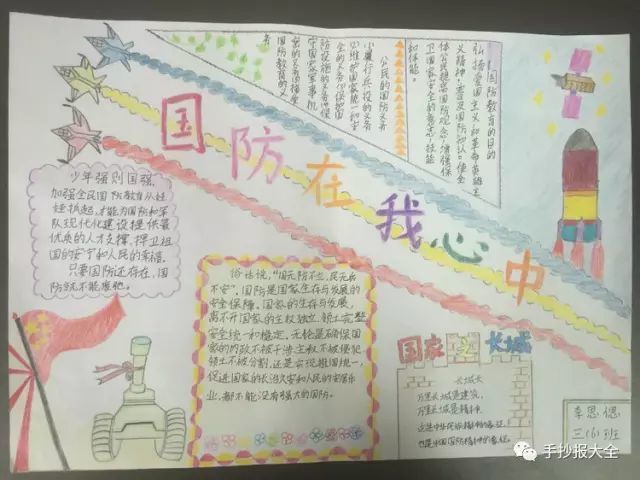 国防在我心中
1.国防教育的目的
弘扬爱国主义和革命英雄主
义精神,普及国防知识。使全
体公民提高国防观念,增强保
卫国家安全的意志、技能
和体能。
公民的国防义务
少年强则国强,
加强全民国防教育从娃
娃抓起,才能为国防和军
队现代化建设提供最
优良的人才支撑,捍卫祖
国的安宁和人民的幸福。
只要国防还存在,国
防就不能废弛。
俗话说,“国无防不立,民无兵
不安”,国防是国家生存与发展的
安全保障。国家的生存与发展,
离不开国家的主权独立、领土完整
安全统一和稳定,无论是确保国
家的内政不被干涉主权不被侵犯
领土不被分割,还是实现祖国统一,
促进国家的长治久安和人民的安居乐
业,都不能没有强大的国防。
国家之长城
长城长
万里长城是建筑,
万里长城是精神
这些中华民族精神的象征,
也是中国国防精神的象征。
李思偲
三(6)班
手抄报大全